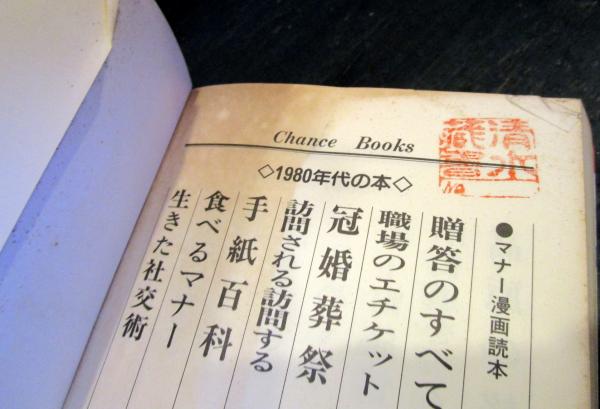 Chance Books
◇1980年代の本◇
●マナー漫画読本
贈答のすべて
職場のエチケット
冠婚葬祭
訪問される訪問する
手紙百科
食べるマナー
生きた社交術